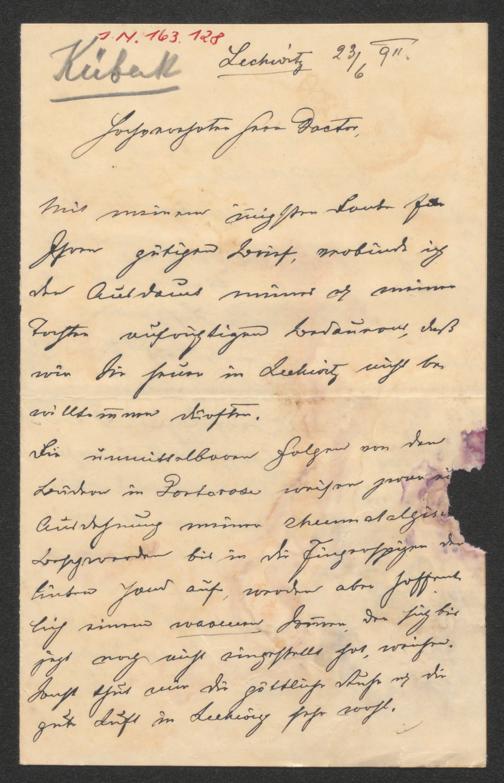 I.N. 163.128
Kübeck
Lechwitz 23/6 911.
Hochverehrter Herr Doctor,
Mit meinem innigsten Danke für
Ihren gütigen Brief, verbinde ich
den Ausdruck meines & meiner
Tochter aufrichtigen Bedauerns, daß
wir Sie heuer in Lechwitz nicht be
willkommen dürften.
Die unmittelbaren Folgen von den
Bädern in Portorose weisen zwar
Ausdehnung meiner rheumatalgisch
Beschwerden bis in die Fingerspitzen der
linken Hand auf, werden aber hoffent
lich einem warmen Sommer der sich bis
jetzt noch nicht eingestellt hat, weichen.
Sonst thut mir die göttliche Ruhe & die
gute Luft in Lechwitz sehr wohl.